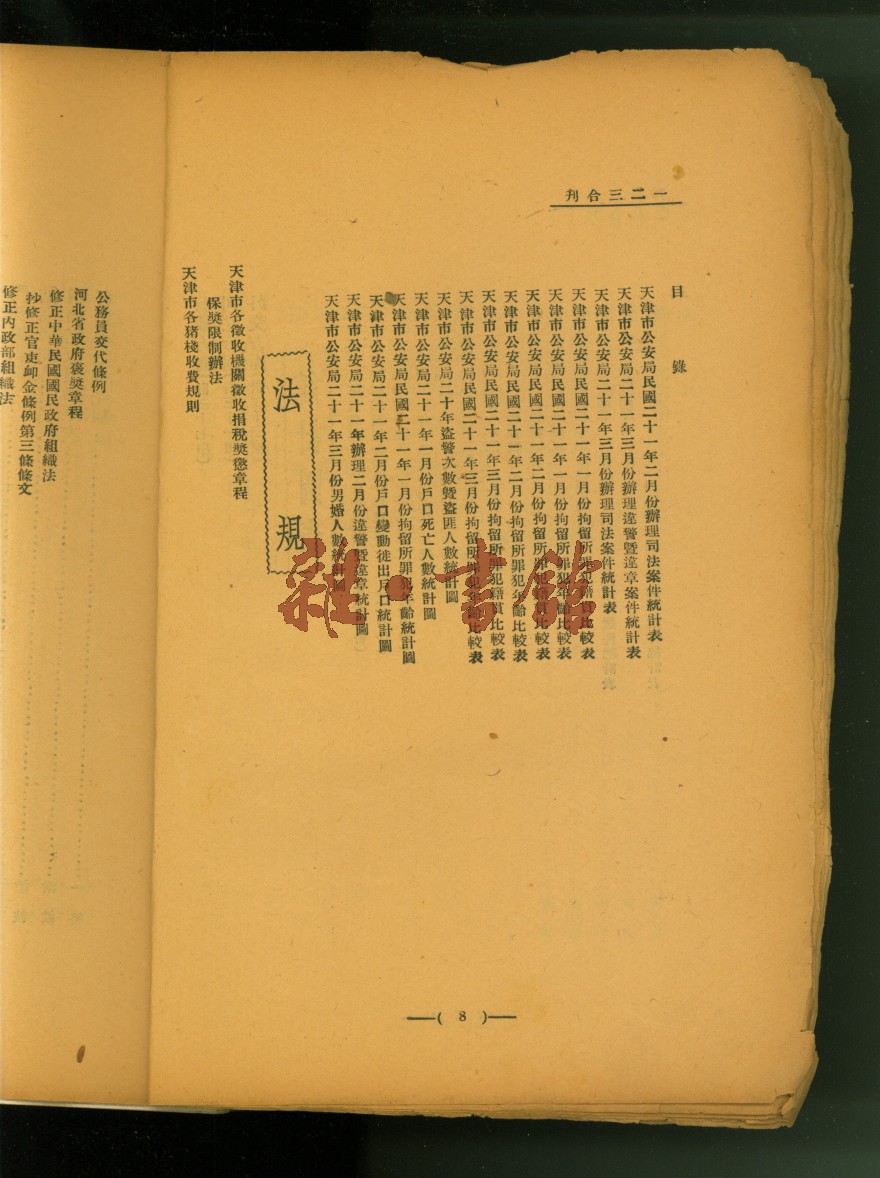 一二三合刊
目錄
天津市公安局民國二十一年二月份辦理司法案件統計表
天津市公安局二十一年三月份辦理違警暨違章案件統計表
天津市公安局二十一年三月份辦理司法案件統計表
天津市公安局民國二十一年一月份拘留所罪犯籍貫比較表
天津市公安局民國二十一年一月份拘留所罪犯年齡比較表
天津市公安局民國二十一年二月份拘留所罪犯籍貫比較表
天津市公安局民國二十一年二月份拘留所罪犯年齡比較表
天津市公安局民國二十一年三月份拘留所罪犯籍貫比較表
天津市公安局民國二十一年三月份拘留所罪犯年齡比較表
天津市公安局二十年盜警次數暨盜匪人數統計圖
天津市公安局二十一年一月份戶口死亡人數統計圖
天津市公安局民國二十一年一月份拘留所罪犯年齡統計圖
天津市公安局二十一年二月份戶口變動徙出戶口統計圖
天津市公安局二十一年辦理二月份違警暨違章統計圖
天津市公安局二十一年三月份男婚人數統計圖
法規
天津市各徵收機關徵收捐稅獎懲章程
保獎限制辦法
天津市各猪棧收費規則
— ( 8 ) —
公務員交代條例
河北省政府褒獎章程
修正中華民國國民政府組織法
抄修正官吏卹金條例第三條條文
修正內政部組織法
雜·書館